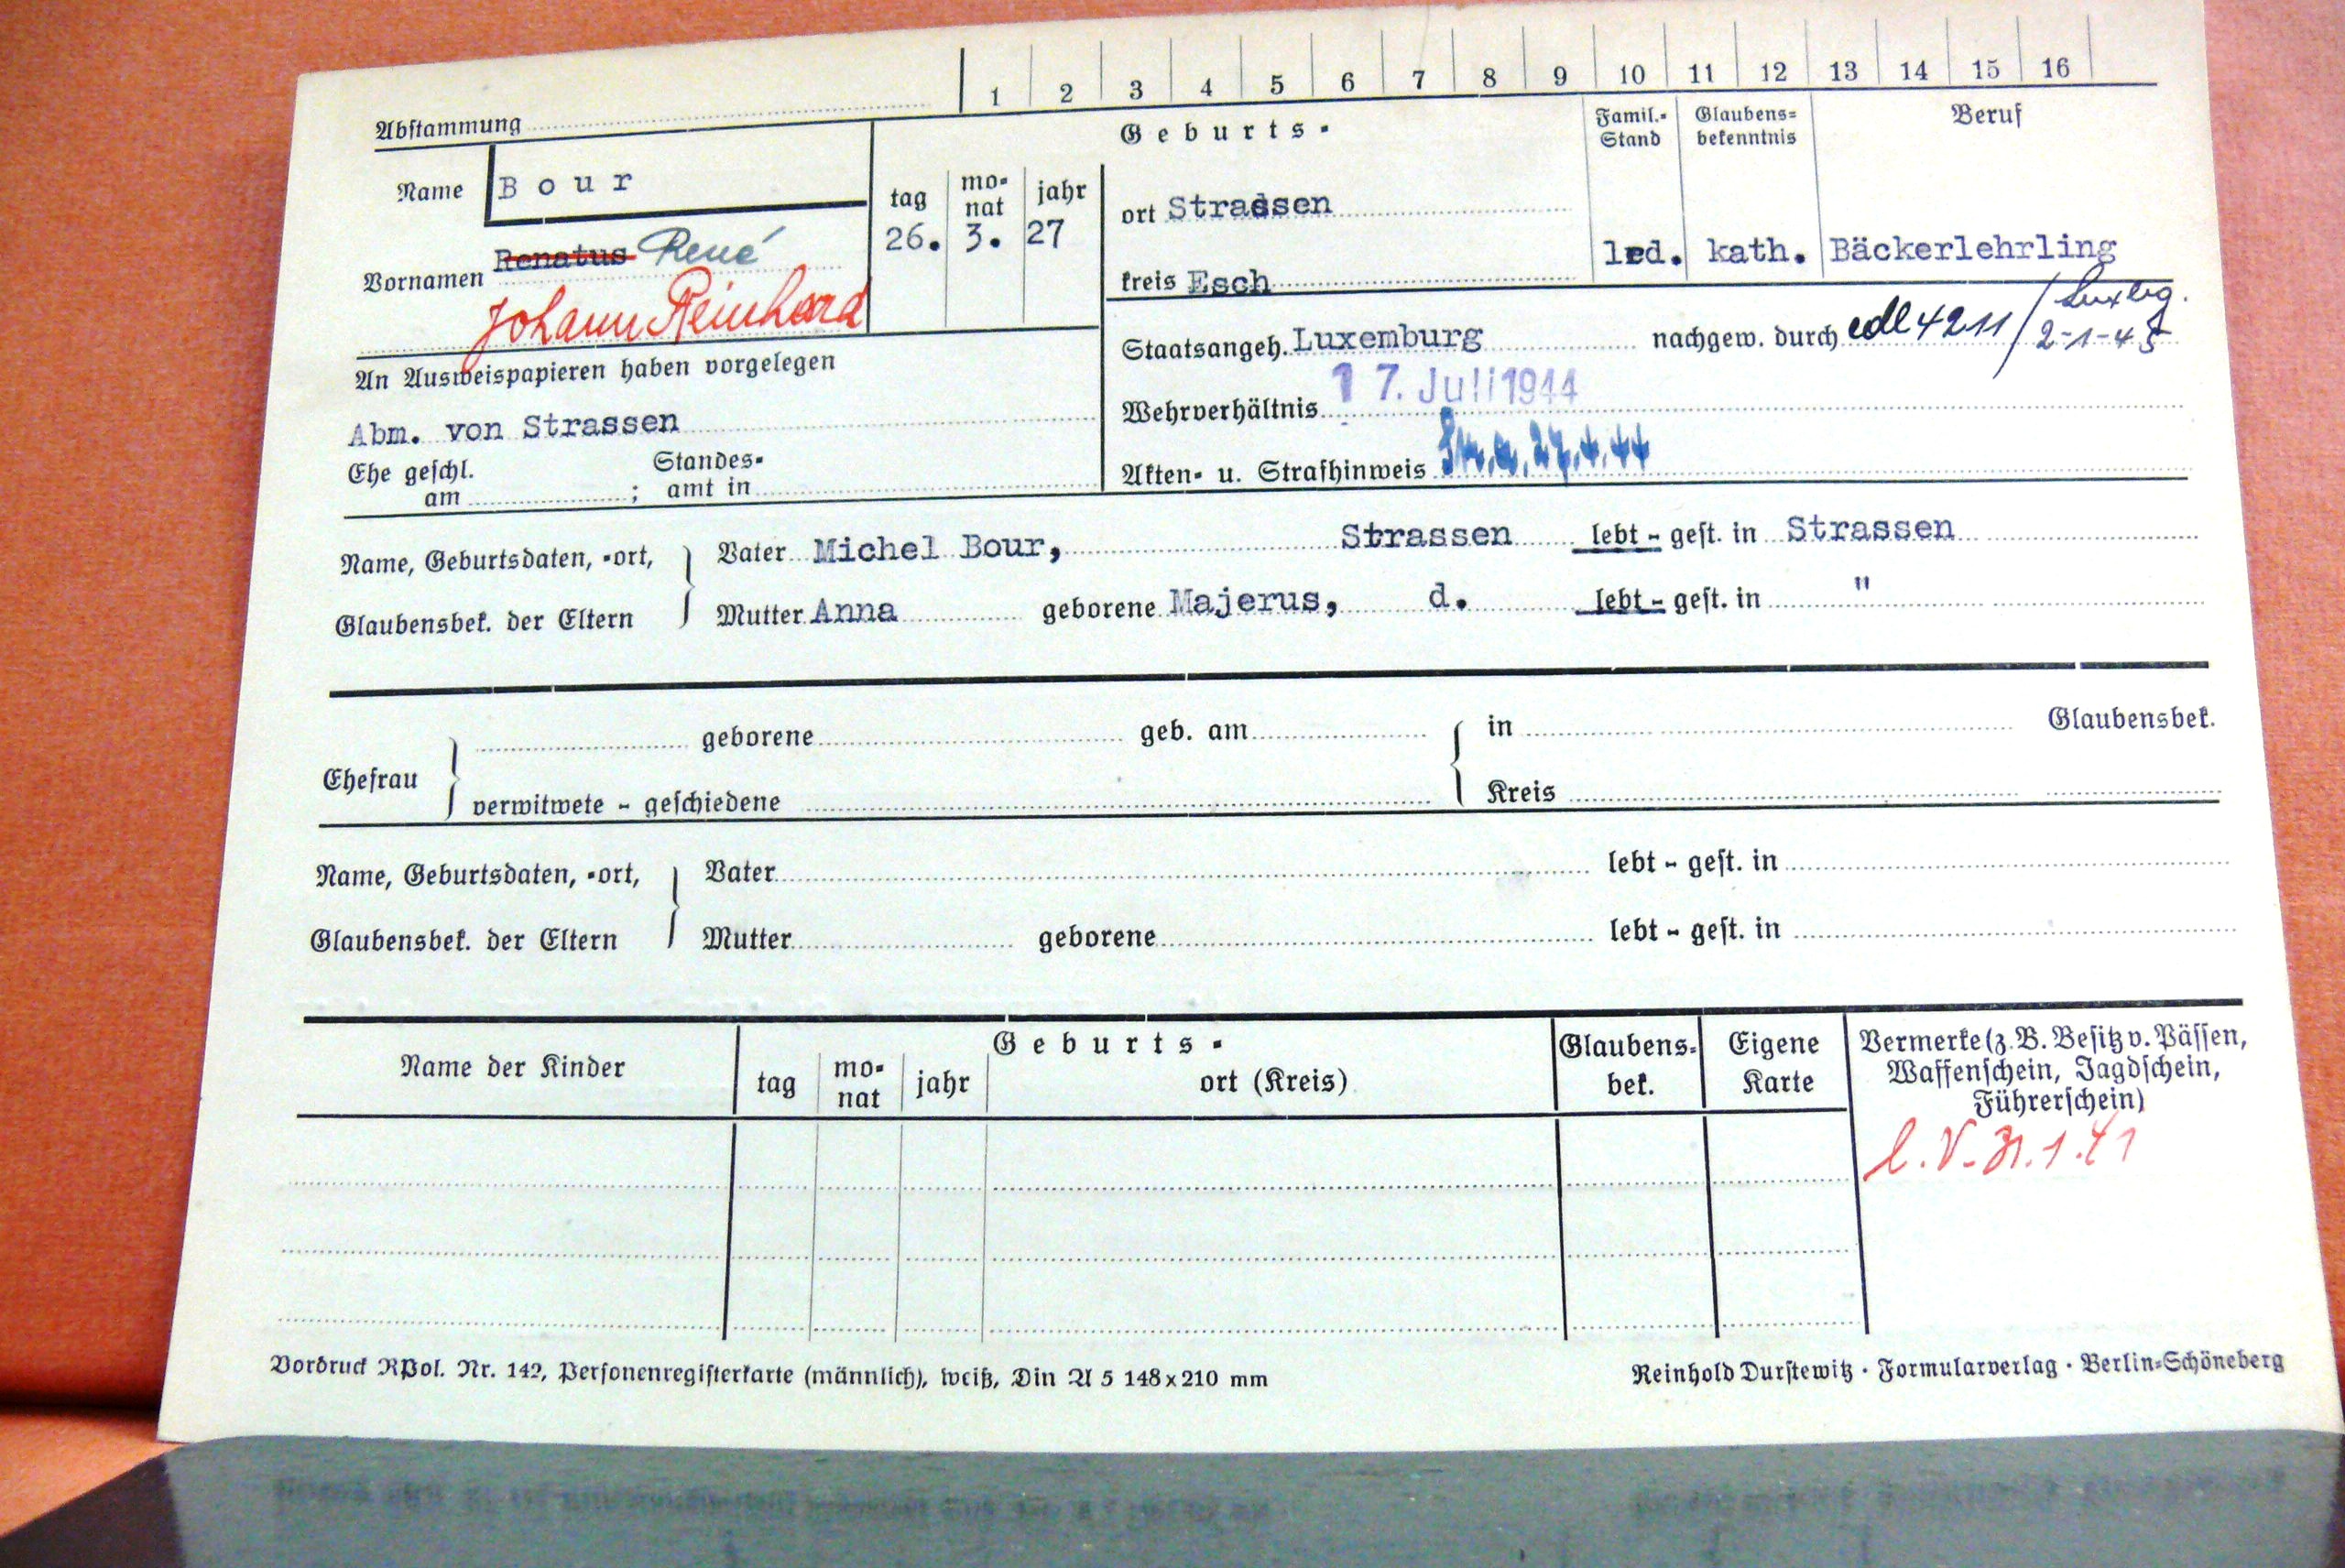 1 2 3 4 5 6 7 8 9 10 11 12 13 14 15 16
Abstammung
Name Bour
Vornamen Renatus René
Johann Reinhard
Geburts-
tag monat jahr
26. 3. 27
ort Strassen
kreis Esch
Famil.-Stand
led.
Glaubensbekenntnis
kath.
Beruf
Bäckerlehrling
An Ausweispapieren haben vorgelegen
Abm. von Strassen
Ehe geschl. am ; Standesamt in
Staatsangeh. Luxemburg nachgew. durch 4211 / Luxbg. 2-1-45
Wehrverhältnis 17. Juli 1944
Akten- u. Strafhinweis 27.4.44
Name, Geburtsdaten, -ort,
Glaubensbek. der Eltern
Vater Michel Bour, Strassen lebt - gest. in Strassen
Mutter Anna geborene Majerus, d. lebt - gest. in "
Ehefrau
geborene geb. am in Glaubensbek.
verwitwete - geschiedene Kreis
Name, Geburtsdaten, -ort,
Glaubensbek. der Eltern
Vater lebt - gest. in
Mutter geborene lebt - gest. in
Name der Kinder
Geburts-
tag monat jahr ort (Kreis)
Glaubensbek.
Eigene Karte
Vermerke (z. B. Besitz v. Pässen,
Waffenschein, Jagdschein,
Führerschein)
l. V. 31.1.41
Vordruck RPol. Nr. 142, Personenregisterkarte (männlich), weiß, Din A 5 148x210 mm
Reinhold Durstewitz · Formularverlag · Berlin-Schöneberg